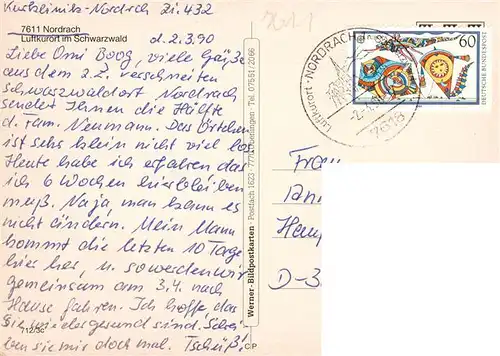 Kurklinik-Nordrach Zi. 432
7611 Nordrach
Luftkurort im Schwarzwald
d. 2.3.90
Liebe Omi Boog, viele Grüße
aus dem z.Z. verschneiten
Schwarzwaldort Nordrach
sendet Ihnen die Hälfte
d. Fam. Neumann. Das Örtchen
ist sehr klein nicht viel los
Heute habe ich erfahren das
ich 6 Wochen hierbleiben
muß. Na ja man kann es
nicht ändern. Mein Mann
kommt die letzten 10 Tage
hier her, u. so werden wir
gemeinsam am 3.4. nach
Hause fahren. Ich hoffe, das
Sie wieder gesund sind. Schrei-
ben sie mir doch mal. Tschüß!
12/3c
CP
Werner-Bildpostkarten · Postfach 1623 · 7770 Überlingen · Tel. 07551/2066
Luftkurort · NORDRACH
7618
60
DEUTSCHE BUNDESPOST
Frau
D-3